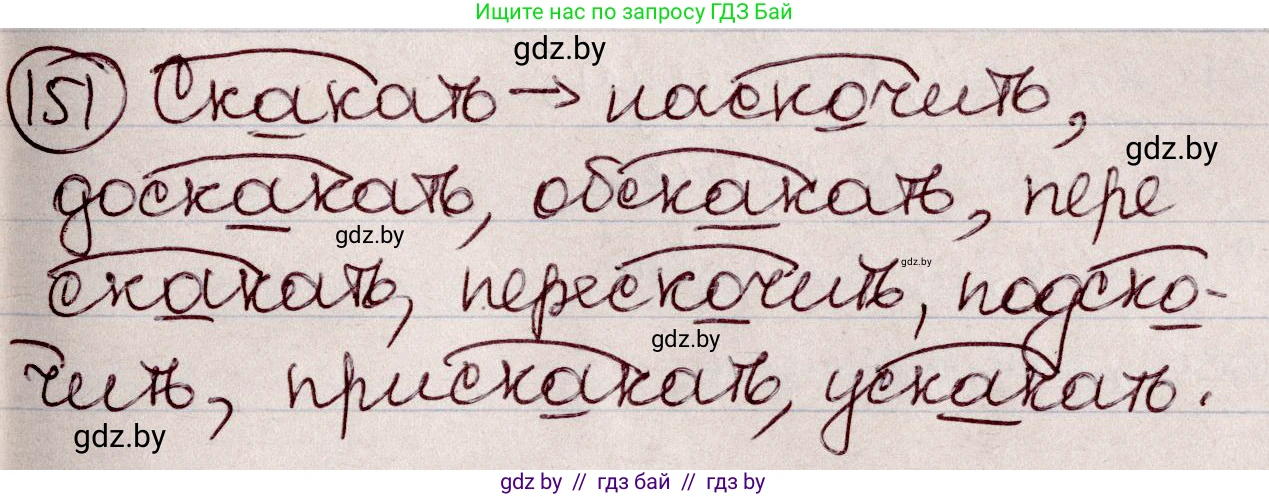 Ищите нас по запросу ГДЗ Бай
gdz.by
151 Скакать → наскочить,
gdz.by
доскакать, обскакать, пере
gdz.by
скакать, перескочить, подско-
gdz.by
gdz.by
чить, прискакать, ускакать.
gdz.by
gdz.by // гдз бай // гдз by